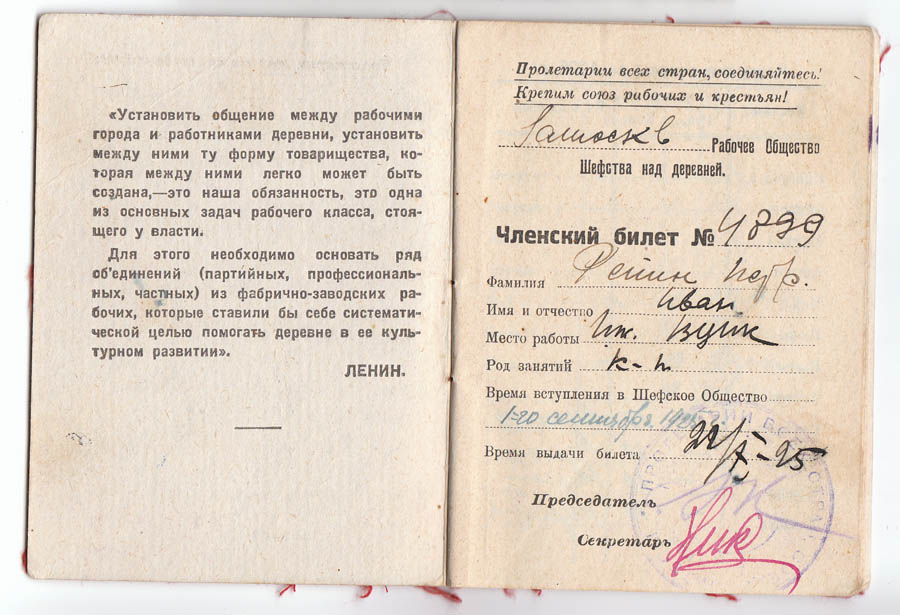 «Установить общение между рабочими
города и работниками деревни, установить
между ними ту форму товарищества, ко-
торая между ними легко может быть
создана,—это наша обязанность, это одна
из основных задач рабочего класса, стоя-
щего у власти.
Для этого необходимо основать ряд
об'единений (партийных, профессиональ-
ных, частных) из фабрично-заводских ра-
бочих, которые ставили бы себе системати-
ческой целью помогать деревне в ее куль-
турном развитии».
ЛЕНИН.
Пролетарии всех стран, соединяйтесь!
Крепим союз рабочих и крестьян!
Рабочее Общество
Шефства над деревней.
Членский билет № 4899
Фамилия
Имя и отчество Иван
Место работы
Род занятий
Время вступления в Шефское Общество
1-го сентября
Время выдачи билета 22/X-25
Председатель
Секретарь